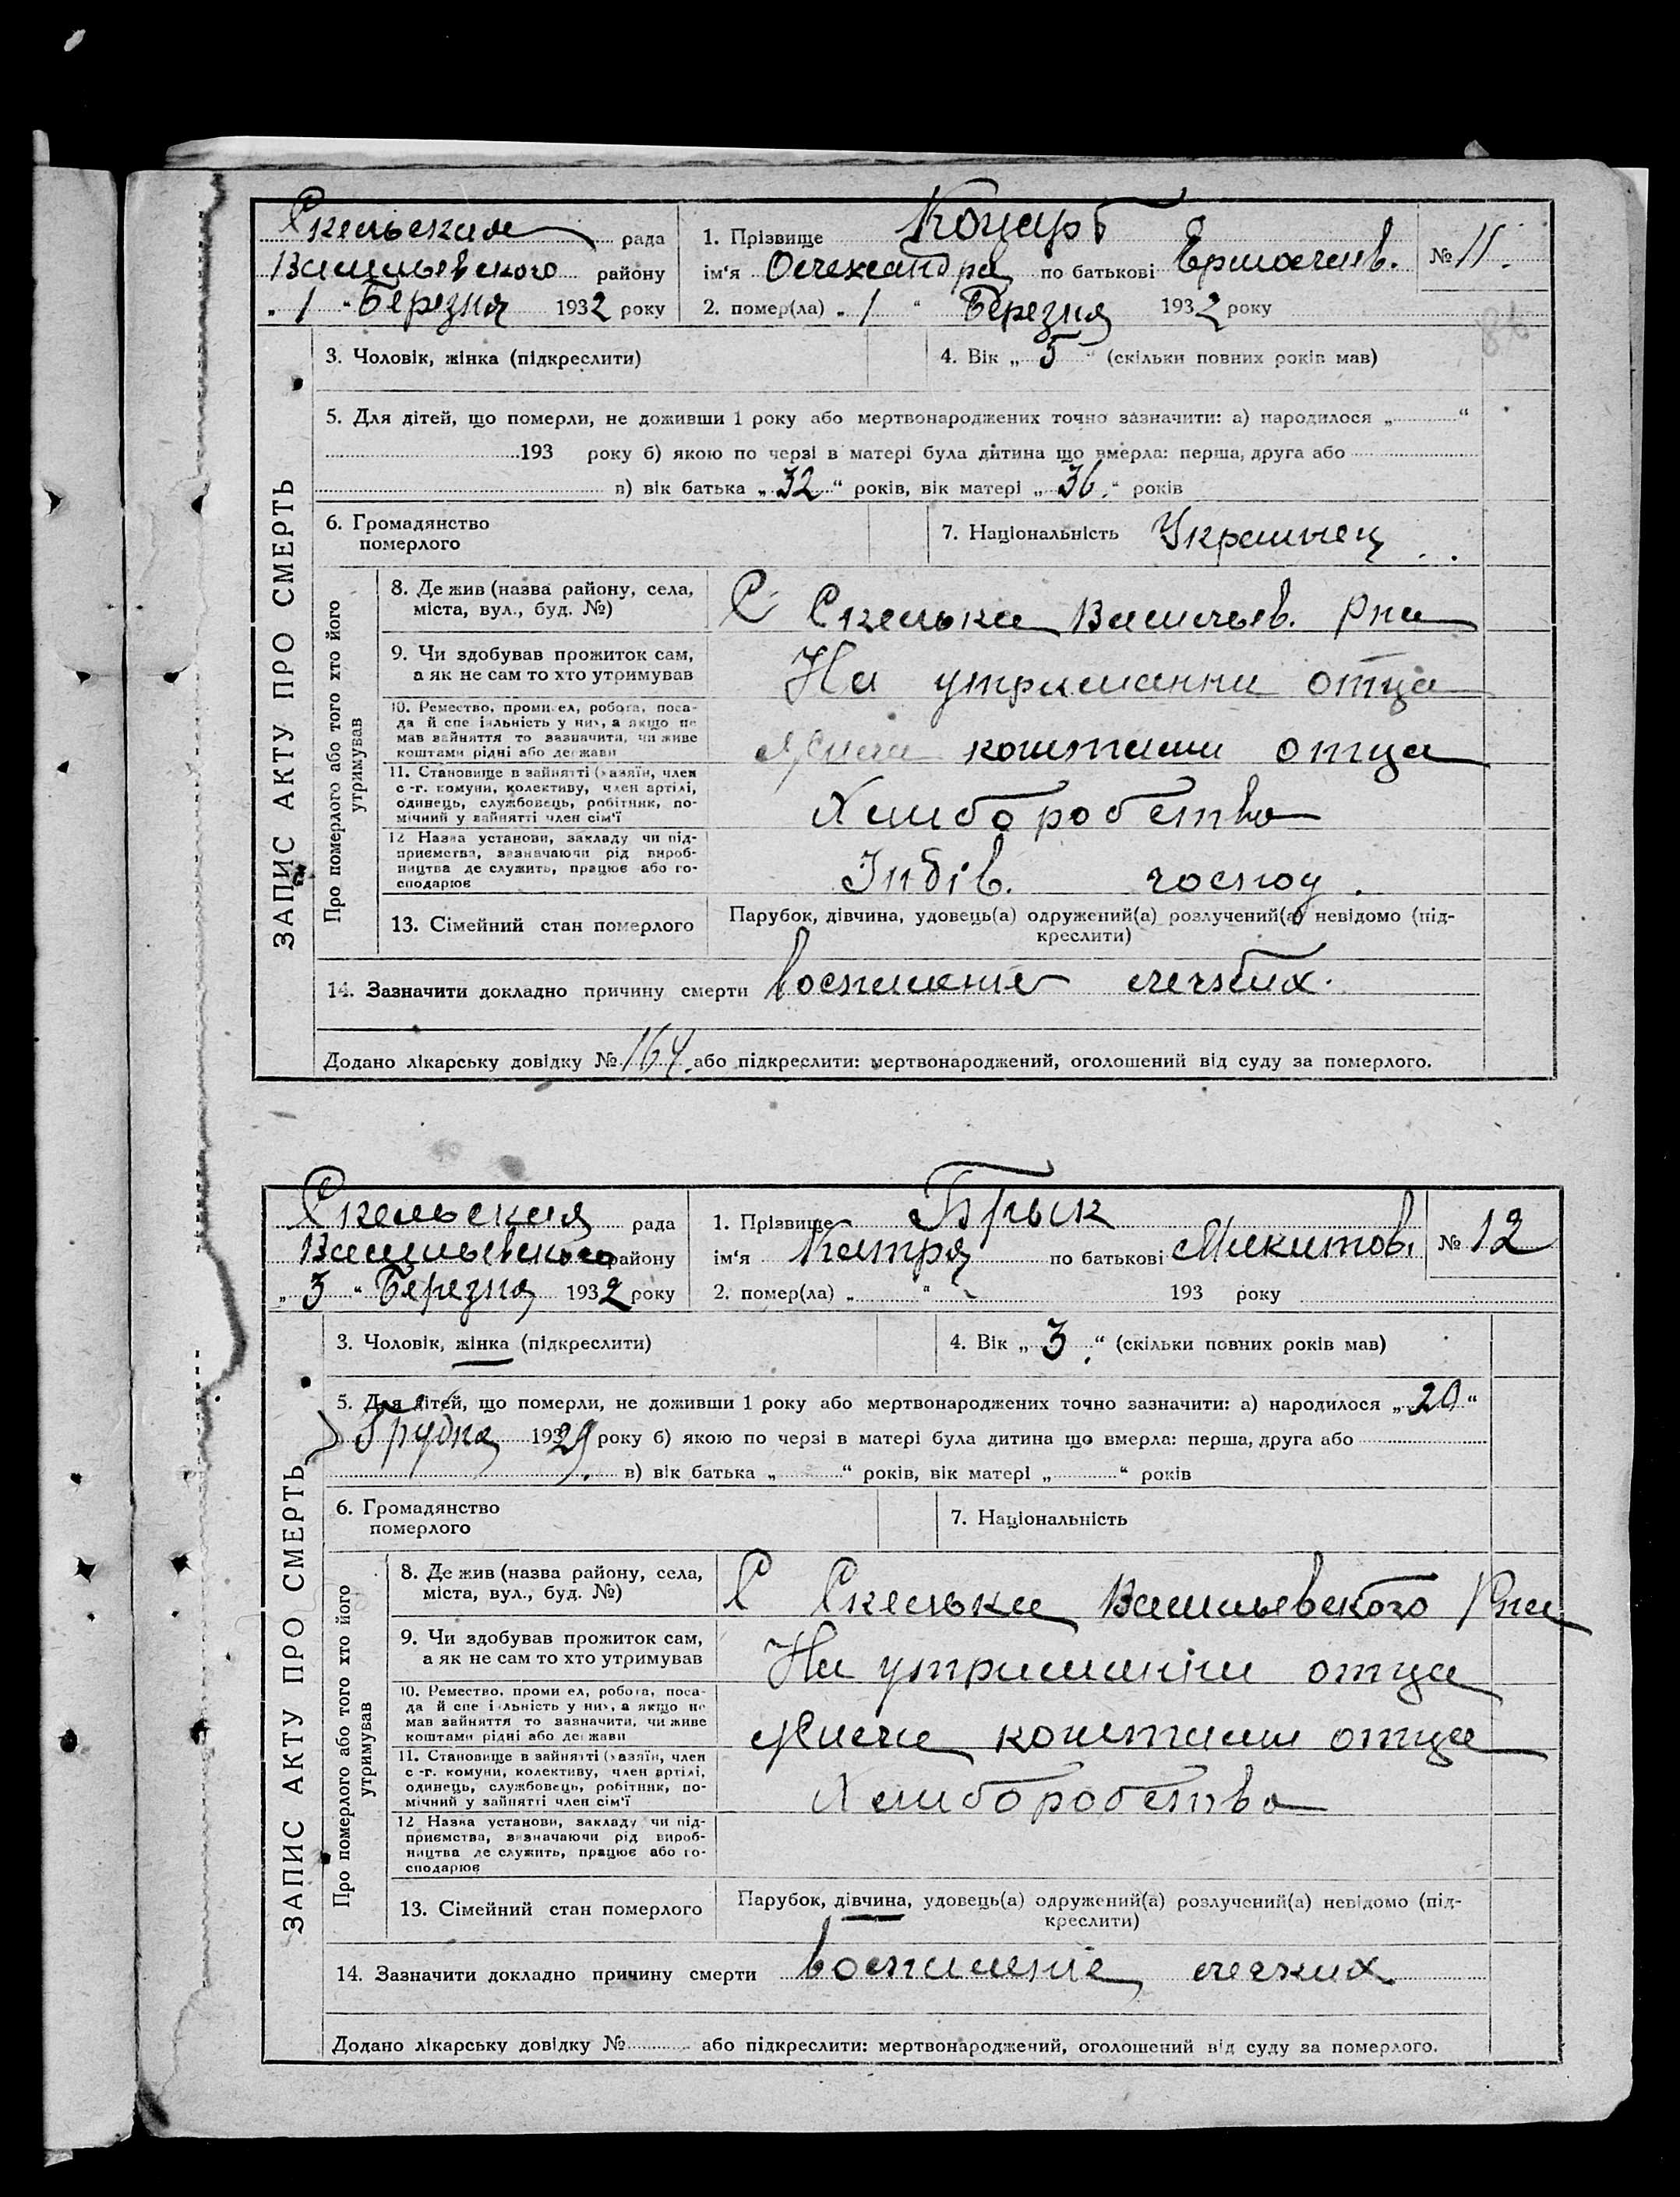 Скельская рада
Васильевского району
„ 1 “ Березня 1932 року
1. Прізвище Коцарь
№ 11.
ім'я Олександра по батькові Ермолаив.
2. помер(ла) „ 1 “ Березня 1932 року
3. Чоловік, жінка (підкреслити)
4. Вік „ 5 “ (скільки повних років мав)
5. Для дітей, що померли, не доживши 1 року або мертвонароджених точно зазначити: а) народилося „ “
193 року б) якою по черзі в матері була дитина що вмерла: перша, друга або
в) вік батька „ 32 “ років, вік матері „ 36. “ років
6. Громадянство
померлого
7. Національність Украинец
ЗАПИС АКТУ ПРО СМЕРТЬ
Про померлого або того хто його
утримував
8. Де жив (назва району, села,
міста, вул., буд. №)
С Скелька Васильев. Рна
9. Чи здобував прожиток сам,
а як не сам то хто утримував
На утриманни отца
10. Ремество, промисел, робота, поса-
да й спеціяльність у них, а якщо не
мав зайняття то зазначити, чи живе
коштами рідні або держави
Жила коштами отца
11. Становище в зайнятті (хазяїн, член
с.-г. комуни, колективу, член артілі,
одинець, службовець, робітник, по-
мічний у зайнятті член сім'ї
Хлиборобство
12 Назва установи, закладу чи під-
приємства, зазначаючи рід вироб-
ництва де служить, працює або го-
сподарює
Індів. господ.
13. Сімейний стан померлого
Парубок, дівчина, удовець(а) одружений(а) розлучений(а) невідомо (під-
креслити)
14. Зазначити докладно причину смерти воспаление легких.
Додано лікарську довідку № 164. або підкреслити: мертвонароджений, оголошений від суду за померлого.
Скельская рада
Васильевского району
„ 3 “ Березня 1932 року
1. Прізвище Брык
№ 12
ім'я Катря по батькові Микитов.
2. помер(ла) „ “ 193 року
3. Чоловік, жінка (підкреслити)
4. Вік „ 3. “ (скільки повних років мав)
5. Для дітей, що померли, не доживши 1 року або мертвонароджених точно зазначити: а) народилося „ 20 “
Грудня 1929. року б) якою по черзі в матері була дитина що вмерла: перша, друга або
в) вік батька „ “ років, вік матері „ “ років
6. Громадянство
померлого
7. Національність
ЗАПИС АКТУ ПРО СМЕРТЬ
Про померлого або того хто його
утримував
8. Де жив (назва району, села,
міста, вул., буд. №)
С Скелька Васильевского Рна
9. Чи здобував прожиток сам,
а як не сам то хто утримував
На утриманіи отца
10. Ремество, промисел, робота, поса-
да й спеціяльність у них, а якщо не
мав зайняття то зазначити, чи живе
коштами рідні або держави
Жила коштами отца
11. Становище в зайнятті (хазяїн, член
с.-г. комуни, колективу, член артілі,
одинець, службовець, робітник, по-
мічний у зайнятті член сім'ї
Хлиборобство
12 Назва установи, закладу чи під-
приємства, зазначаючи рід вироб-
ництва де служить, працює або го-
сподарює
13. Сімейний стан померлого
Парубок, дівчина, удовець(а) одружений(а) розлучений(а) невідомо (під-
креслити)
14. Зазначити докладно причину смерти воспаление легких
Додано лікарську довідку № або підкреслити: мертвонароджений, оголошений від суду за померлого.